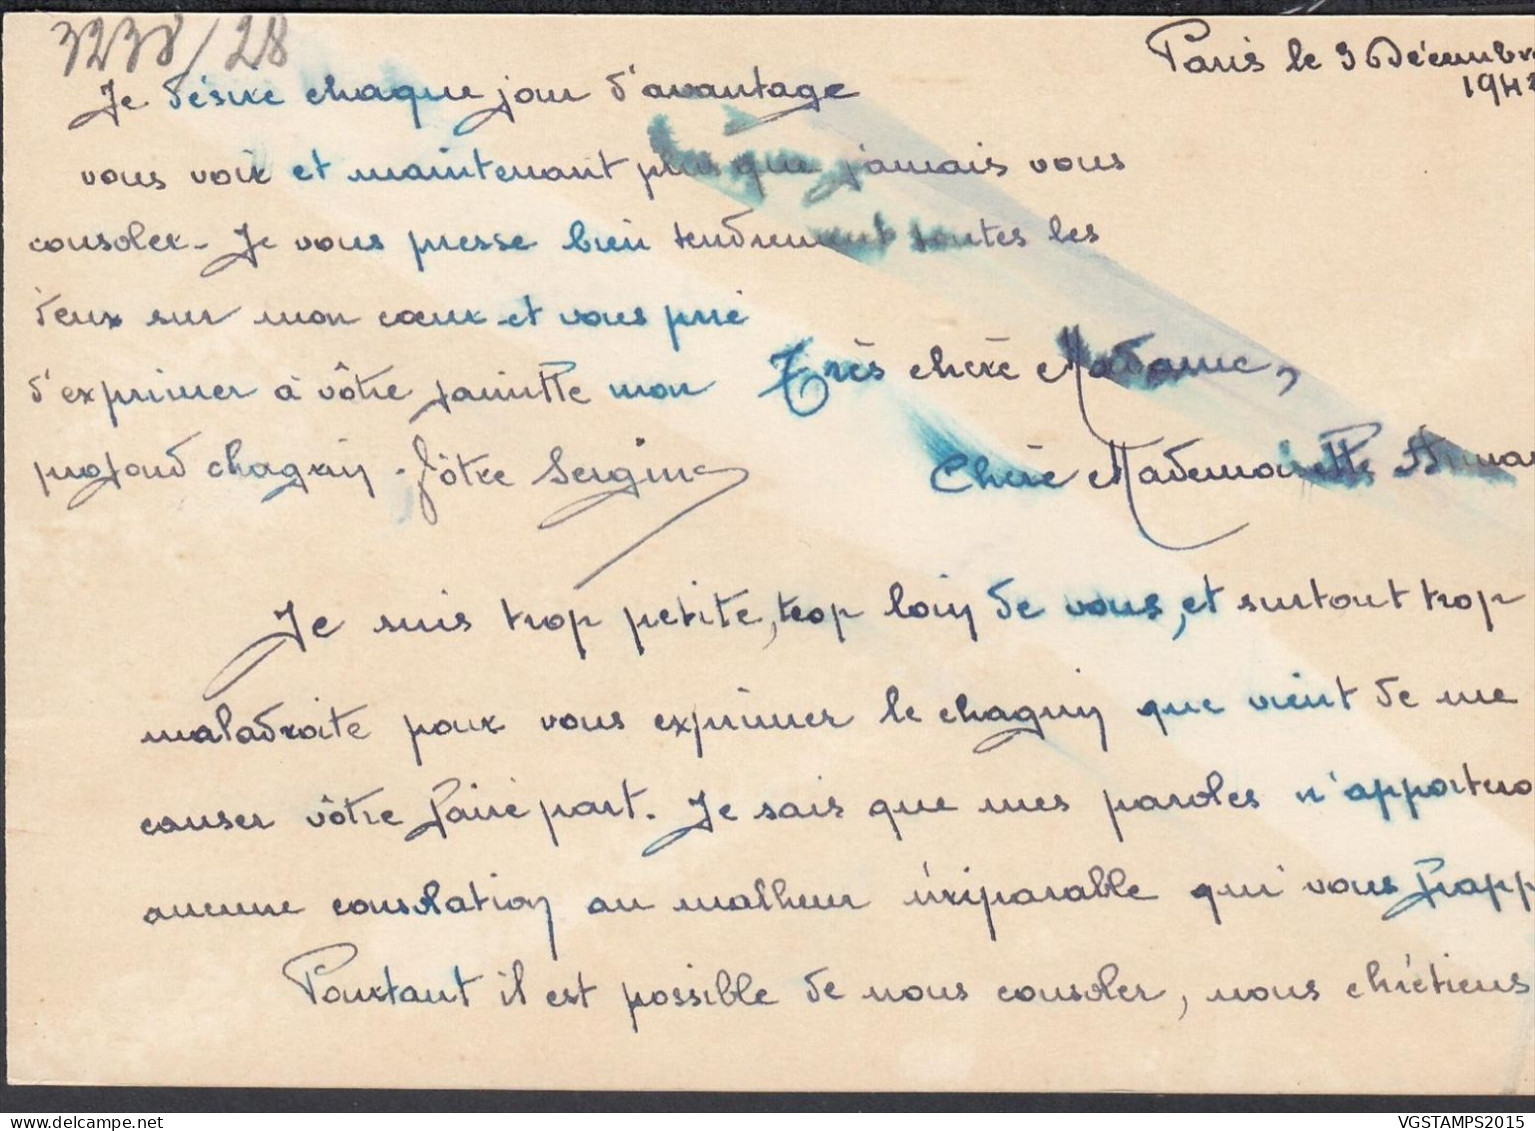 3238/28
Paris le 30 Décembre
194
Je désire chaque jour d'avantage
vous voir et maintenant plus que jamais vous
consoler. Je vous presse bien tendrement toutes les
deux sur mon cœur et vous prie
d'exprimer à vôtre famille mon
profond chagrin. Vôtre Sergine
Très chère Madame,
Chère Mademoiselle
Je suis trop petite, trop loin de vous, et surtout trop
maladroite pour vous exprimer le chagrin que vient de me
causer vôtre faire part. Je sais que mes paroles n'apportero
aucune consolation au malheur irréparable qui vous frapp
Pourtant il est possible de nous consoler, nous chrétiens
VGSTAMPS2015